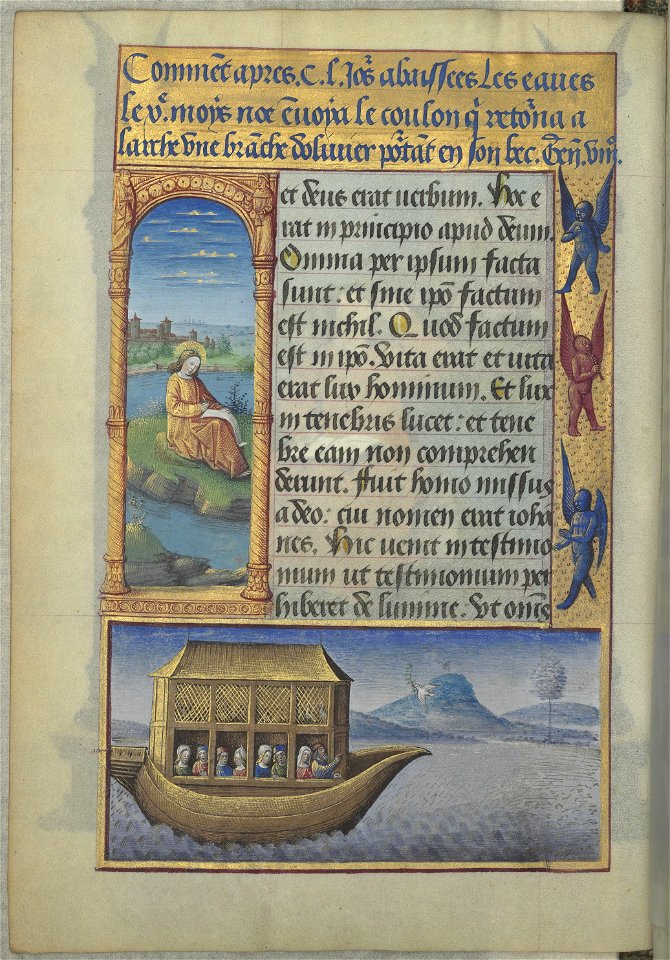 Comment apres. C. l. Jors abaissees les eaues
le v.e moys noe envoya le coulon qi retorna a
larche une branche dolivier portant en son bec. Gen. viii.
et deus erat verbum. Hoc e
rat in principio apud deum.
Omnia per ipsum facta
sunt: et sine ipo factum
est nichil. Quod factum
est in ipo. Vita erat et vita
erat lux hominum. Et lux
in tenebris lucet: et tene
bre eam non comprehen
derunt. Fuit homo missus
a deo: cui nomen erat ioha
nes. Hic venit in testimo
nium ut testimonium per
hiberet de lumine. Ut omes